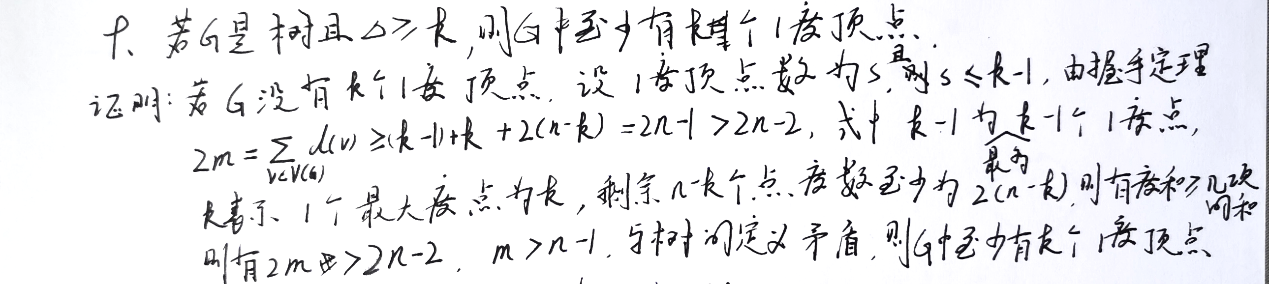 十、若G是树且Δ≥k,则G中至少有k个1度顶点.
证明:若G没有k个1度顶点.设1度顶点数为s,且s≤k-1,由握手定理
2m=∑d(v)≥(k-1)+k+2(n-k)=2n-1>2n-2,式中k-1为最多k-1个1度点,
v∈V(G)
k表示1个最大度点为k,剩余n-k个点度数至少为2(n-k),则有度和≥几项的和
则有2m>2n-2.m>n-1,与树的定义矛盾,则G中至少有k个1度顶点